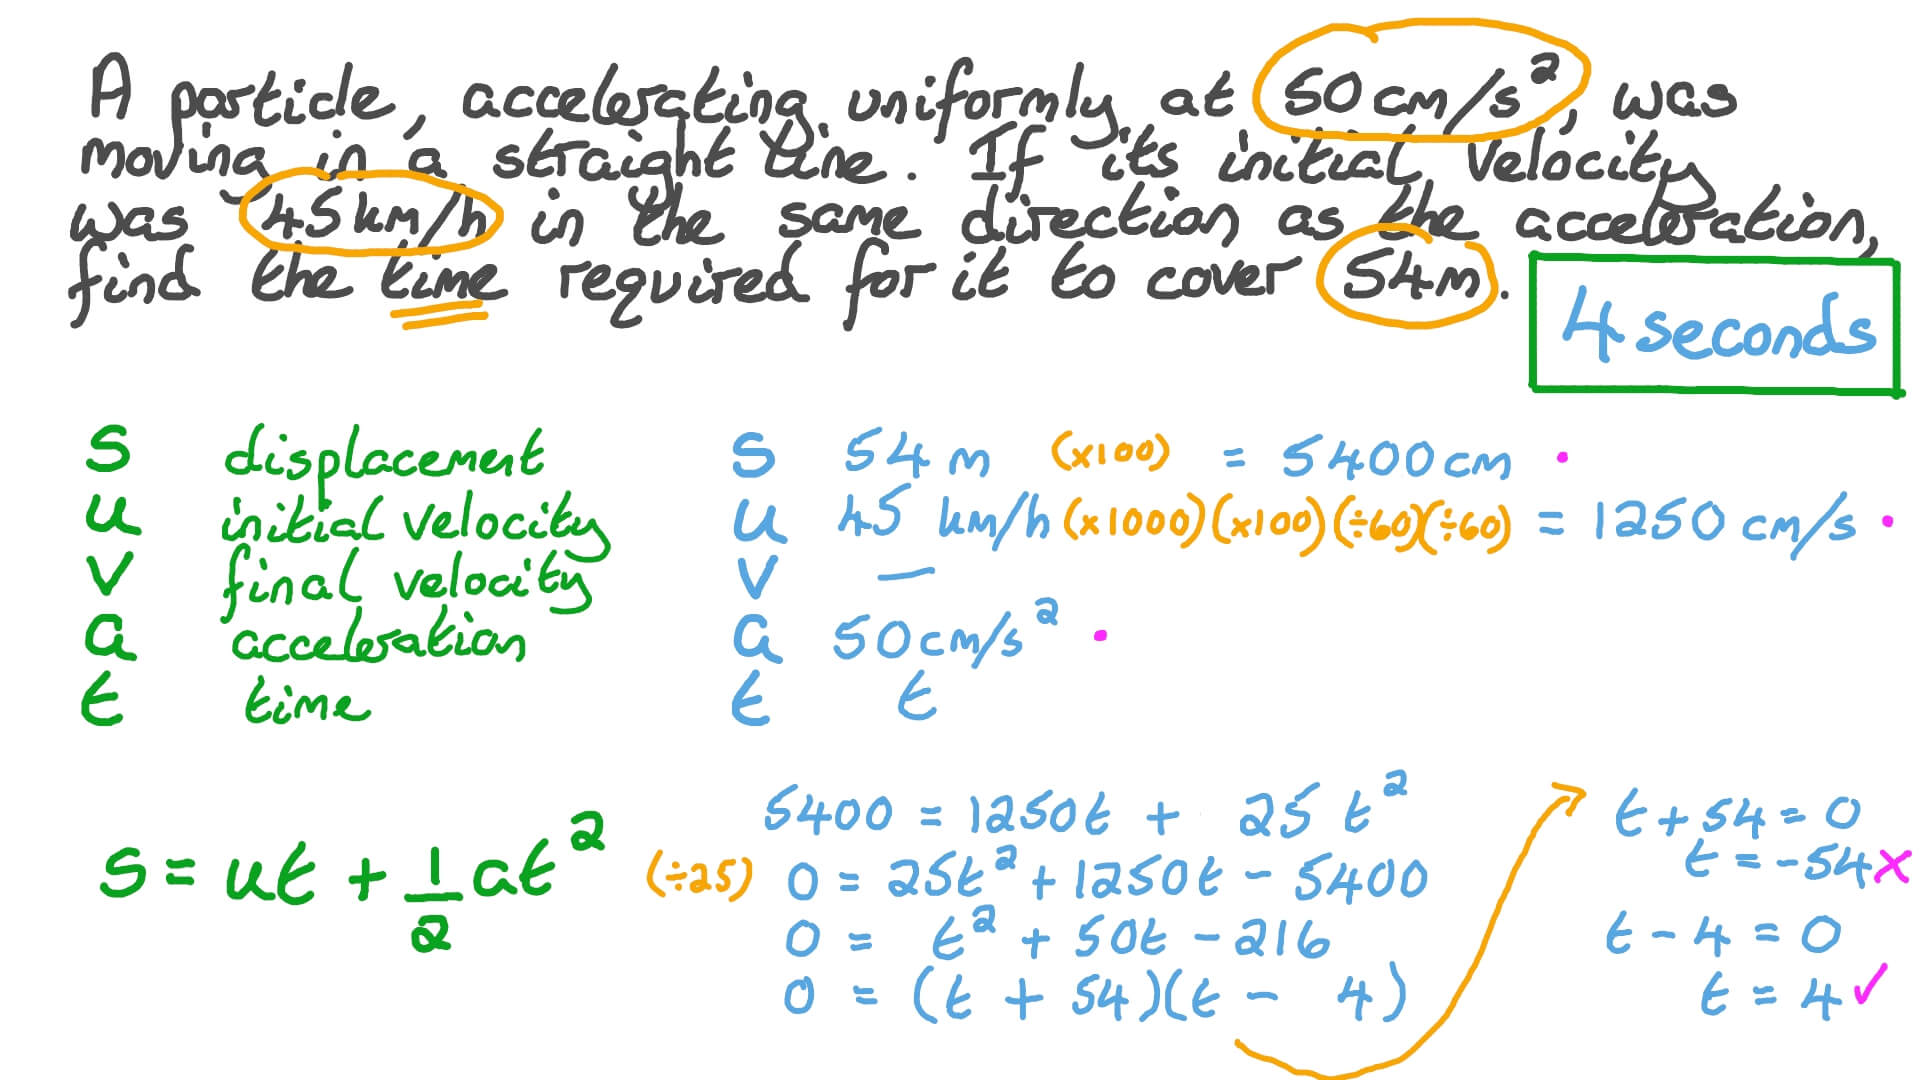 A particle, accelerating uniformly at 50 cm/s², was
moving in a straight line. If its initial velocity
was 45 km/h in the same direction as the acceleration,
find the time required for it to cover 54m.
4 seconds
s displacement
u initial velocity
v final velocity
a acceleration
t time
s 54 m (x100) = 5400 cm
u 45 km/h (x1000)(x100)(÷60)(÷60) = 1250 cm/s
v —
a 50 cm/s²
t t
s = ut + 1/2 at²
5400 = 1250t + 25 t²
(÷25) 0 = 25t² + 1250t - 5400
0 = t² + 50t - 216
0 = (t + 54)(t - 4)
t + 54 = 0
t = -54 ×
t - 4 = 0
t = 4 ✓